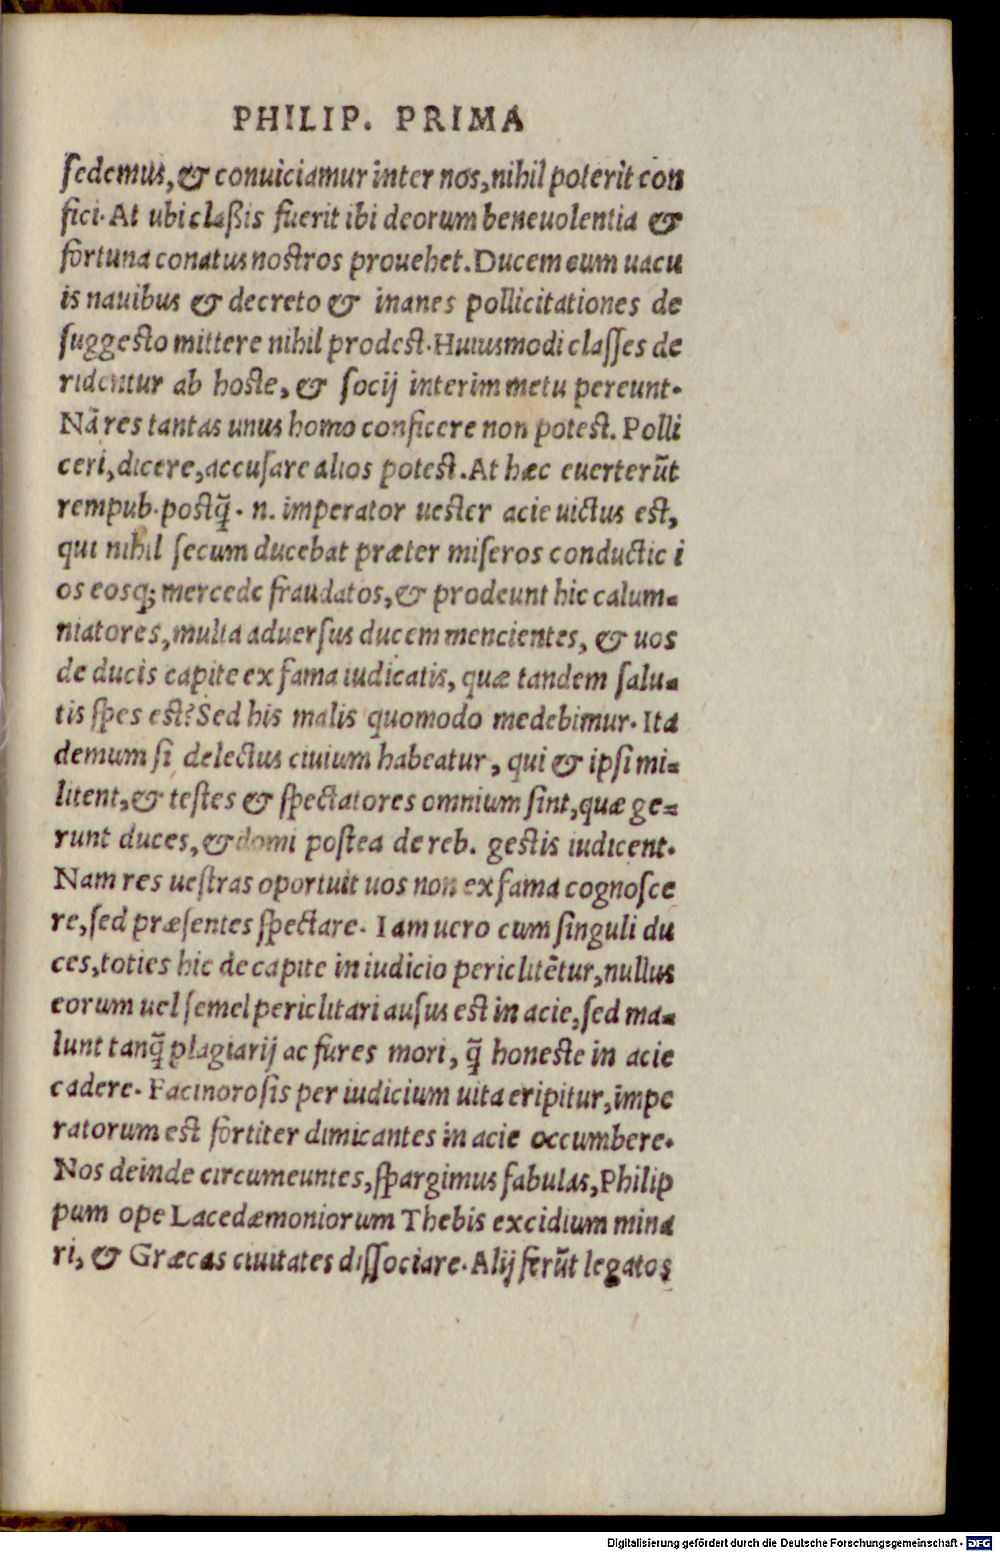 PHILIP. PRIMA
sedemus, & conuiciamur inter nos, nihil poterit con
fici. At ubi claßis fuerit ibi deorum beneuolentia &
fortuna conatus nostros prouehet. Ducem cum uacu
is nauibus & decreto & inanes pollicitationes de
suggesto mittere nihil prodest. Huiusmodi classes de
ridentur ab hoste, & socij interim metu pereunt.
Nā res tantas unus homo conficere non potest. Polli
ceri, dicere, accusare alios potest. At hæc euerterūt
rempub. postq̃. n. imperator uester acie uictus est,
qui nihil secum ducebat præter miseros conductic i
os eosq; mercede fraudatos, & prodeunt hic calum-
niatores, multa aduersus ducem mencientes, & uos
de ducis capite ex fama iudicatis, quæ tandem salu-
tis spes est? Sed his malis quomodo medebimur. Ita
demum si delectus ciuium habeatur, qui & ipsi mi-
litent, & testes & spectatores omnium sint, quæ ge-
runt duces, & domi postea de reb. gestis iudicent.
Nam res uestras oportuit uos non ex fama cognosce
re, sed præsentes spectare. Iam uero cum singuli du
ces, toties hic de capite in iudicio periclitētur, nullus
eorum uel semel periclitari ausus est in acie, sed ma-
lunt tanq̃ plagiarij ac fures mori, q̃ honeste in acie
cadere. Facinorosis per iudicium uita eripitur, impe
ratorum est fortiter dimicantes in acie occumbere.
Nos deinde circumeuntes, spargimus fabulas, Philip
pum ope Lacedæmoniorum Thebis excidium mina
ri, & Græcas ciuitates dissociare. Alij ferūt legatos
Digitalisierung gefördert durch die Deutsche Forschungsgemeinschaft - DFG